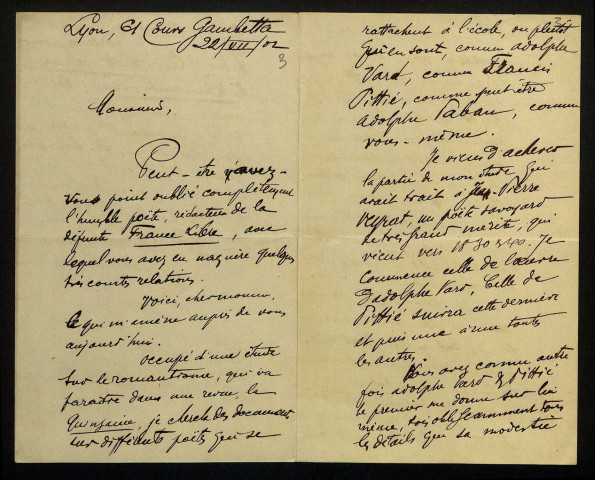 Lyon, 61 Cours Gambetta
22/VII/02
3
Monsieur,
Peut-être n'avez-
vous point oublié complètement
l'humble poète, rédacteur de la
défunte France Libre, avec
lequel vous avez eu naguère quelques
très courtes relations.
Voici, cher monsieur,
ce qui m'amène auprès de vous
aujourd'hui.
Occupé d'une étude
sur le romantisme, qui va
paraître dans une revue, la
Quinzaine, je cherche des documents
sur différents poètes qui se
rattachent à l'école, ou plutôt
qui en sont, comme Adolphe
Vard, comme Francis
Pittié, comme peut-être
Adolphe Paban, comme
vous-même.
Je viens d'achever
la partie de mon étude qui
avait trait à Jean-Pierre
Veyrat, un poète savoyard
de très grand mérite, qui
vient vers 1830 40. Je
commence celle de l'œuvre
d'Adolphe Vard. Celle de
Pittié suivra cette dernière
et puis une à une toutes
les autres.
Vous avez connu autre
fois Adolphe Vard & Pittié
le premier me donne sur lui
même, très obligeamment tous
les détails que sa modestie